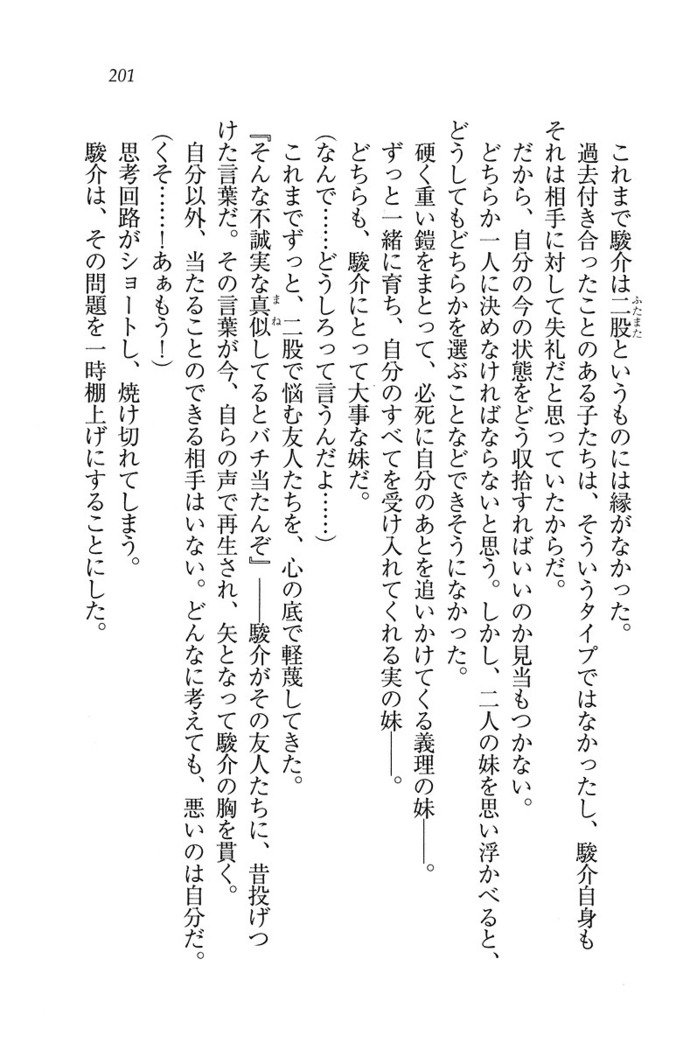 201
これまで駿介は二股というものには縁がなかった。
過去付き合ったことのある子たちは、そういうタイプではなかったし、駿介自身も
それは相手に対して失礼だと思っていたからだ。
だから、自分の今の状態をどう収拾すればいいのか見当もつかない。
どちらか一人に決めなければならないと思う。しかし、二人の妹を思い浮かべると、
どうしてもどちらかを選ぶことなどできそうになかった。
硬く重い鎧をまとって、必死に自分のあとを追いかけてくる義理の妹――。
ずっと一緒に育ち、自分のすべてを受け入れてくれる実の妹――。
どちらも、駿介にとって大事な妹だ。
(なんで……どうしろって言うんだよ……)
これまでずっと、二股で悩む友人たちを、心の底で軽蔑してきた。
『そんな不誠実な真似してるとバチ当たんぞ』――駿介がその友人たちに、昔投げつ
けた言葉だ。その言葉が今、自らの声で再生され、矢となって駿介の胸を貫く。
自分以外、当たることのできる相手はいない。どんなに考えても、悪いのは自分だ。
(くそ……!あぁもう!)
思考回路がショートし、焼け切れてしまう。
駿介は、その問題を一時棚上げにすることにした。